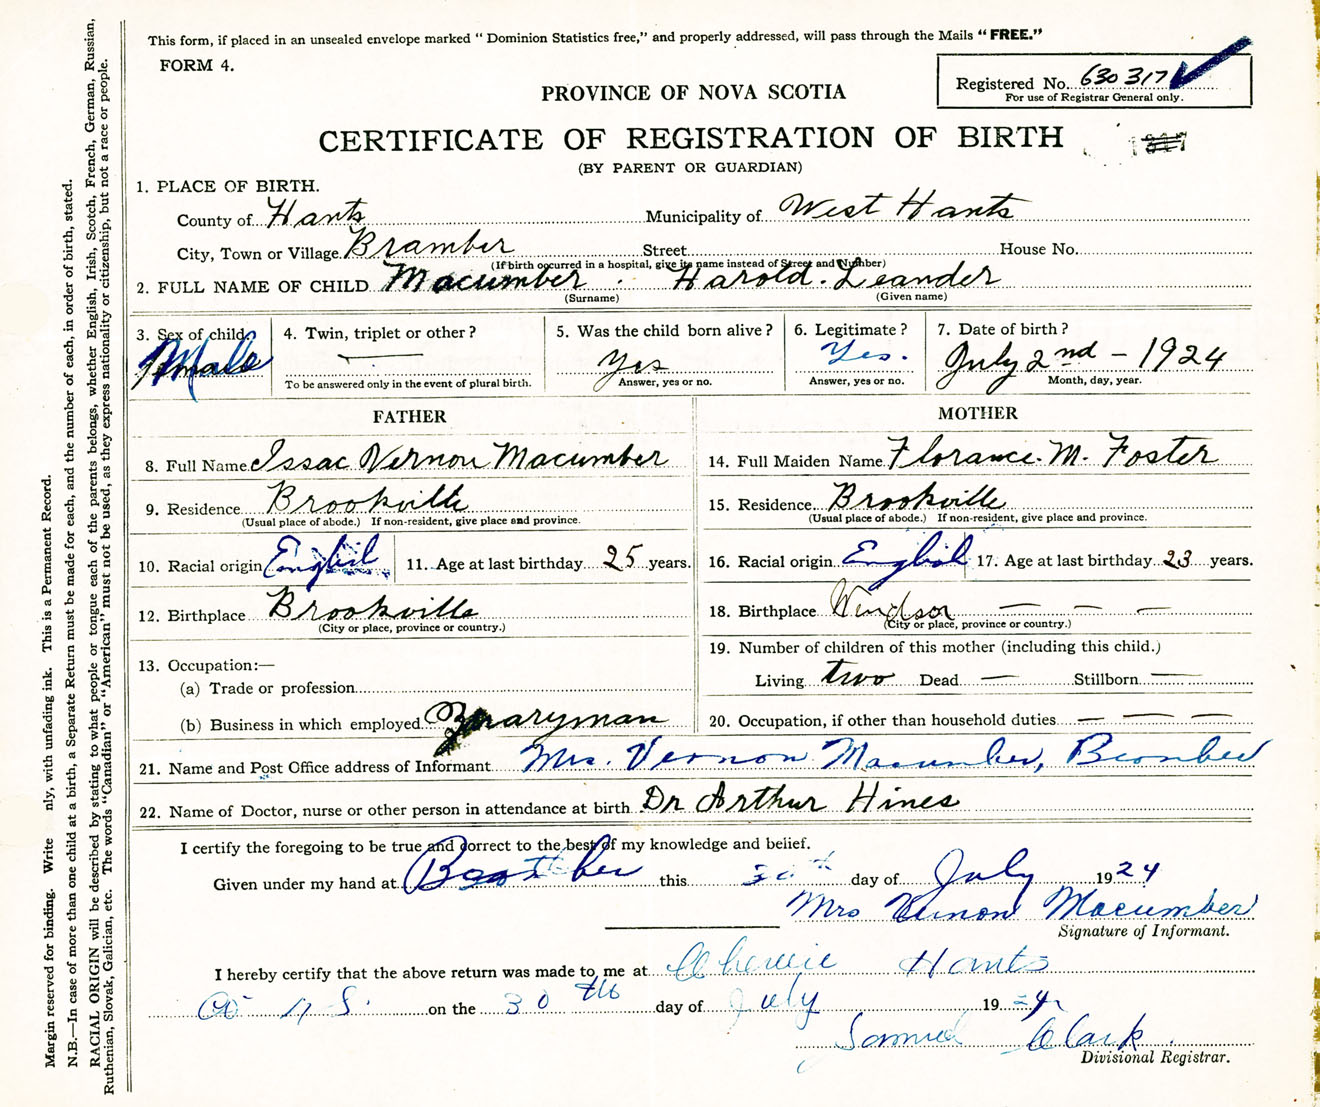 This form, if placed in an unsealed envelope marked "Dominion Statistics free," and properly addressed, will pass through the Mails "FREE."
FORM 4.
Registered No. 630317
For use of Registrar General only.
PROVINCE OF NOVA SCOTIA
CERTIFICATE OF REGISTRATION OF BIRTH
(BY PARENT OR GUARDIAN)
1. PLACE OF BIRTH.
County of Hants Municipality of West Hants
City, Town or Village Bramber Street House No.
(If birth occurred in a hospital, give its name instead of Street and Number)
2. FULL NAME OF CHILD Macumber Harold Leander
(Surname) (Given name)
3. Sex of child? Male
4. Twin, triplet or other? —
To be answered only in the event of plural birth.
5. Was the child born alive? Yes
Answer, yes or no.
6. Legitimate? Yes.
Answer, yes or no.
7. Date of birth? July 2nd - 1924
Month, day, year.
FATHER
8. Full Name Issac Vernon Macumber
9. Residence Brookville
(Usual place of abode.) If non-resident, give place and province.
10. Racial origin English 11. Age at last birthday 25 years.
12. Birthplace Brookville
(City or place, province or country.)
13. Occupation:—
(a) Trade or profession
(b) Business in which employed
MOTHER
14. Full Maiden Name Florance. M. Foster
15. Residence Brookville
(Usual place of abode.) If non-resident, give place and province.
16. Racial origin English 17. Age at last birthday 23 years.
18. Birthplace Windsor — — —
(City or place, province or country.)
19. Number of children of this mother (including this child.)
Living two Dead — Stillborn —
20. Occupation, if other than household duties — — —
21. Name and Post Office address of Informant Mrs. Vernon Macumber,
22. Name of Doctor, nurse or other person in attendance at birth Dr Arthur Hines
I certify the foregoing to be true and correct to the best of my knowledge and belief.
Given under my hand at this 30th day of July 1924
Mrs Vernon Macumber
Signature of Informant.
I hereby certify that the above return was made to me at Cheverie Hants
Co N.S. on the 30th day of July 1924
Samuel Clark
Divisional Registrar.
Margin reserved for binding. Write nly, with unfading ink. This is a Permanent Record.
N.B.—In case of more than one child at a birth, a Separate Return must be made for each, and the number of each, in order of birth, stated.
RACIAL ORIGIN will be described by stating to what people or tongue each of the parents belongs, whether English, Irish, Scotch, French, German, Russian,
Ruthenian, Slovak, Galician, etc. The words "Canadian" or "American" must not be used, as they express nationality or citizenship, but not a race or people.